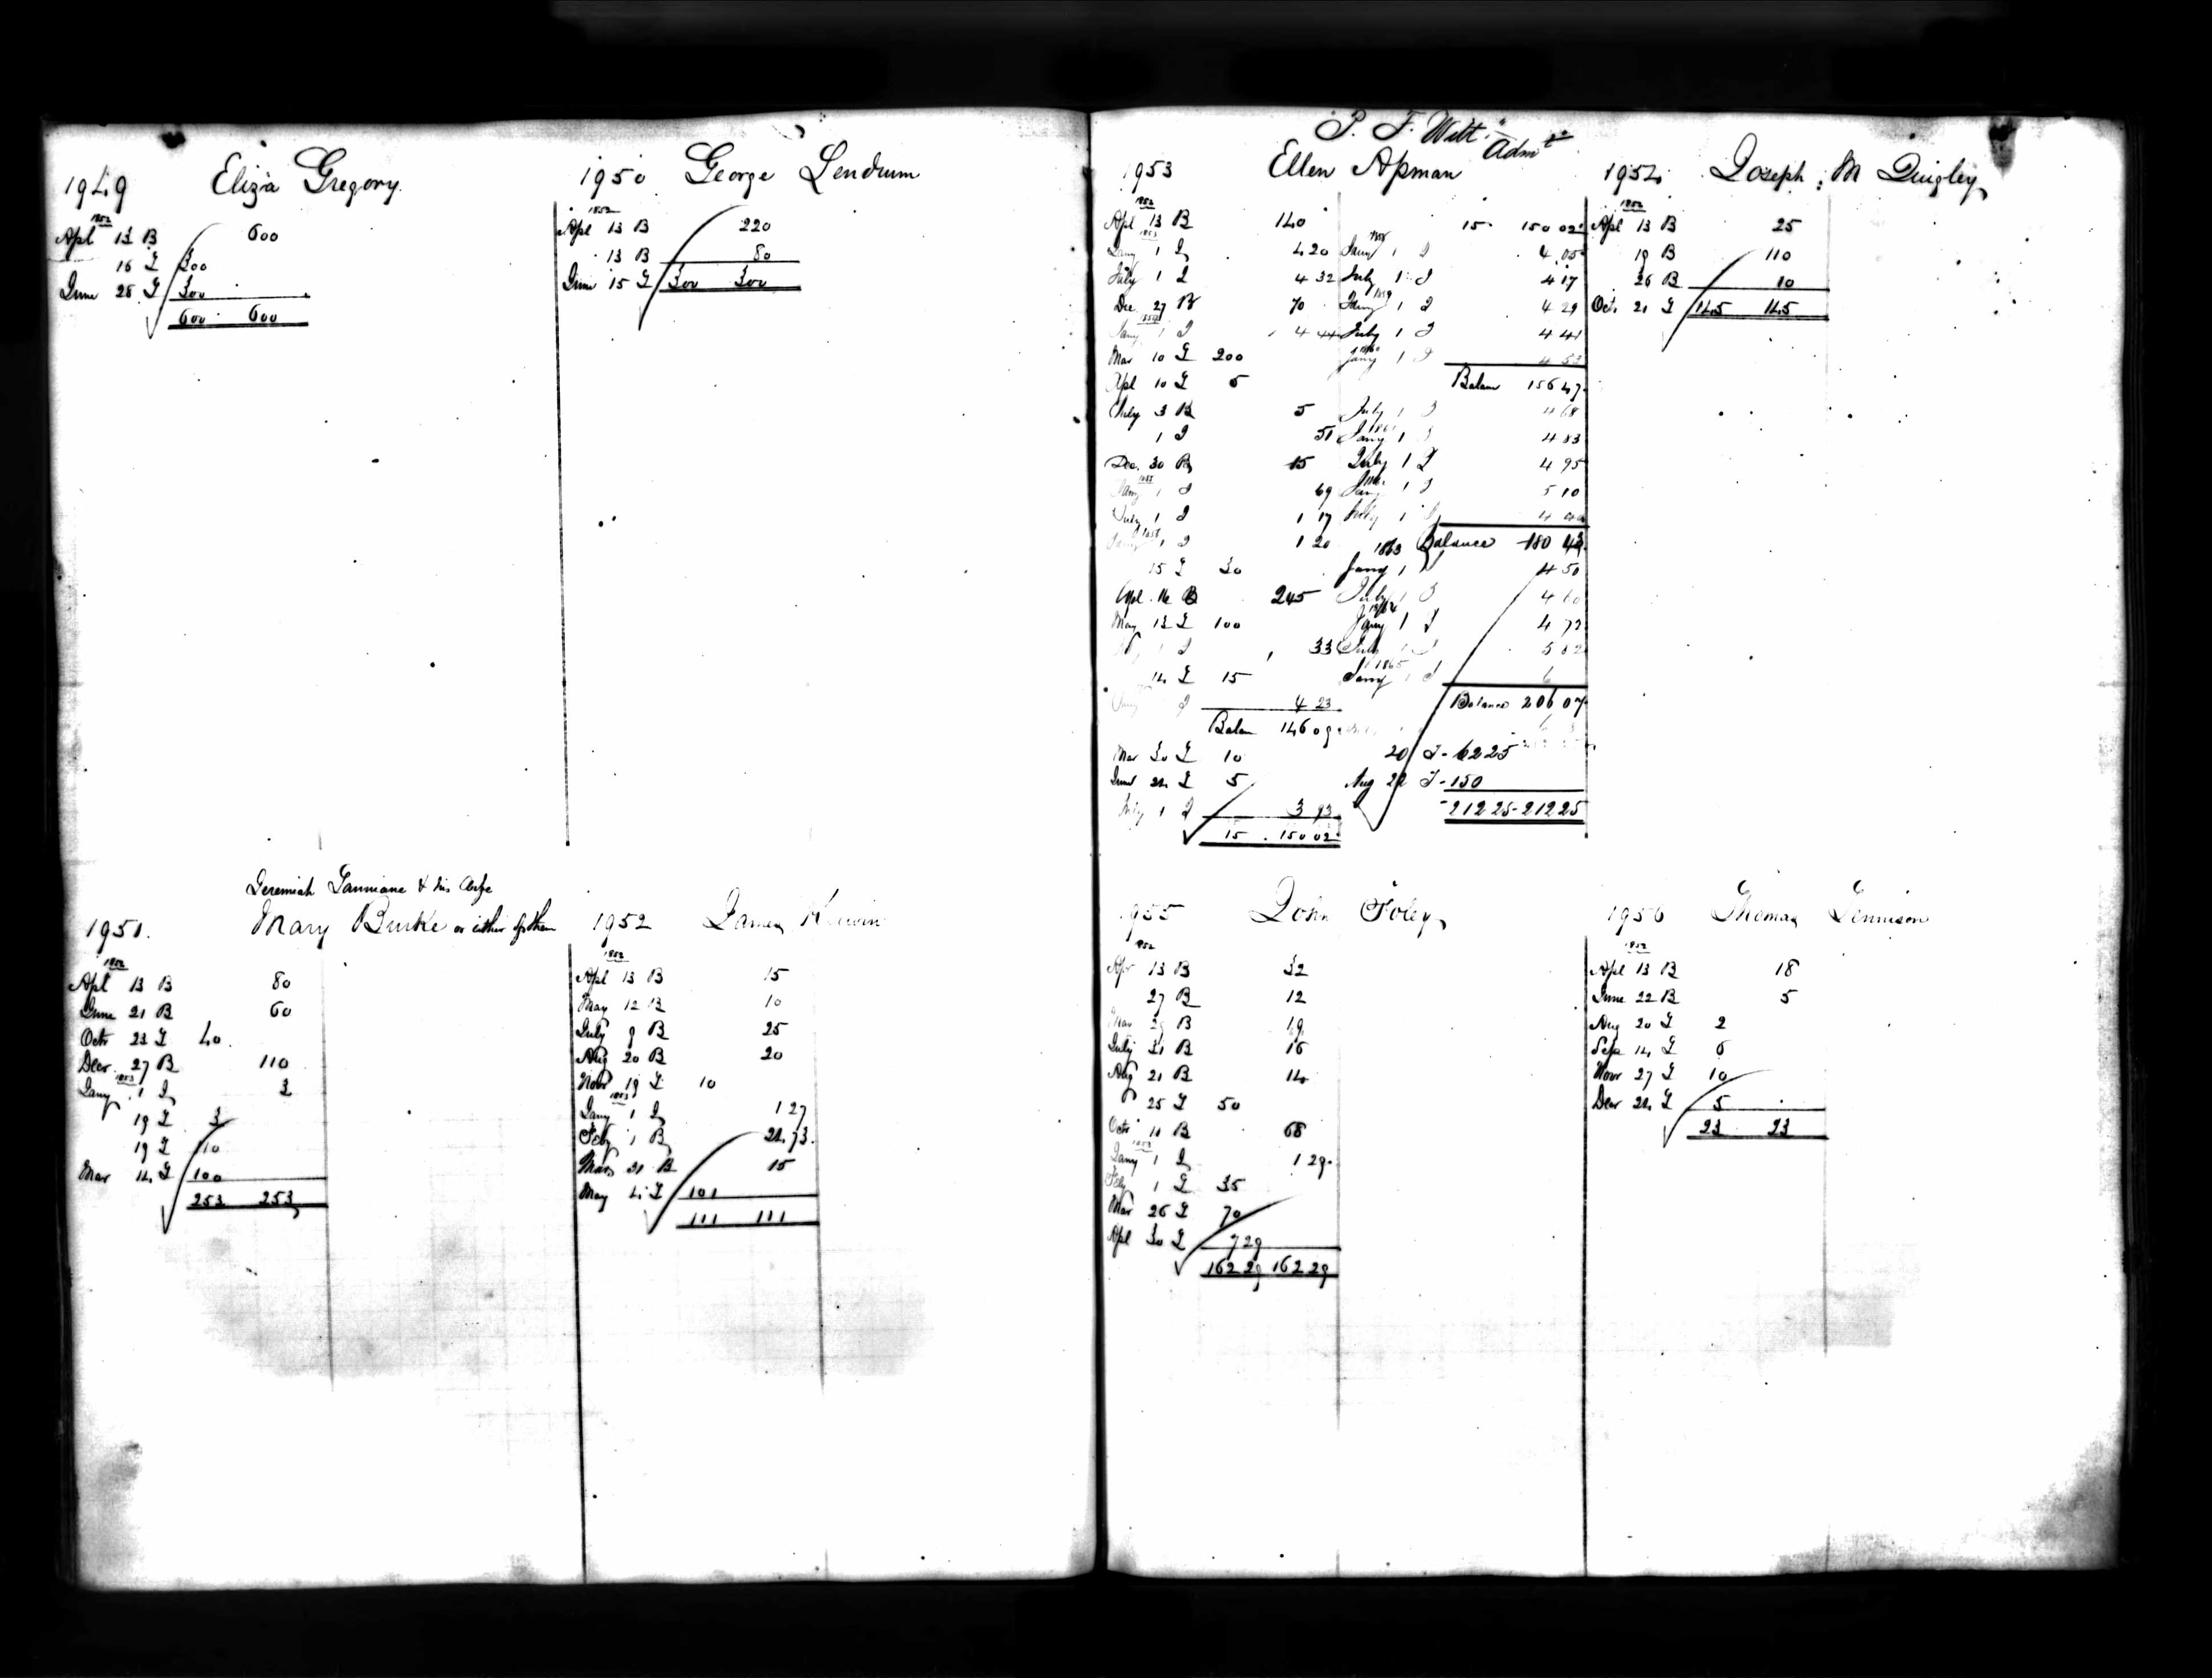 1949 Eliza Gregory
1852
Apl 13 B 600
16 T 300
June 28 T 300
600 600
1950 George Lendrum
1852
Apl 13 B 220
13 B 80
June 15 T 300 300
Jeremiah Tanniane & his wife
1951. Mary Burke or either of them
1852
Apl 13 B 80
June 21 B 60
Octr 23 T 40
Decr 27 B 110
1853
Jany 1 I 3
19 T 3
19 T 10
Mar 14 T 100
253 253
1952 James
1852
Apl 13 B 15
May 12 B 10
July 9 B 25
Aug 20 B 20
Novr 19 T 10
1853
Jany 1 I 1 27
Feby 1 B 24 73
Mar 31 B 15
May 4 T 101
111 111
P. F. Witt Admr
1953 Ellen Apman
1852
Apl 13 B 140
1853
Jany 1 I 4 20
July 1 I 4 32
Dec 27 B 70
1854
Jany 1 I 4 44
Mar 10 T 200
Apl 10 T 5
July 3 B 5
1 I 51
Dec. 30 B 15
Jany 1 I 69
July 1 I 1 17
1 I 1 20
15 T 30
Apl 16 B 245
May 12 T 100
1 I 33
14 T 15
I 4 23
Balam 146 09
Mar 30 T 10
June 24 T 5
July 1 I 3 93
15 150 02
15 150 02
1858
Jany 1 I 4 05
July 1 I 4 17
1859
Jany 1 I 4 29
July 1 I 4 41
1860
Jany 1 I 4 53
Balam 156 47
July 1 I 4 68
1861
Jany 1 I 4 83
July 1 I 4 95
Jany 1 I 5 10
July 1 I
Balance 180 43
1863
Jany 1 I 4 50
July 1 I 4 60
1864
Jany 1 I 4 72
July 1 I 5 82
1865
Jany 1 I 6
Balance 206 07
20 T - 62 25
Aug 22 T - 150
212 25 - 212 25
1954 Joseph M Quigley
1852
Apl 13 B 25
19 B 110
26 B 10
Oct. 21 T 145 145
1955 John Foley
1852
Apr 13 B 32
27 B 12
29 B 19
July 31 B 16
Aug 21 B 14
25 T 50
Octr 11 B 68
1853
Jany 1 I 1 29
Feby 1 T 35
Mar 26 T 70
Apl 30 T 7 29
162 29 162 29
1956 Thomas Tennison
1852
Apl 13 B 18
June 22 B 5
Aug 20 T 2
Sep 14 T 6
Novr 27 T 10
Decr 24 T 5
23 23